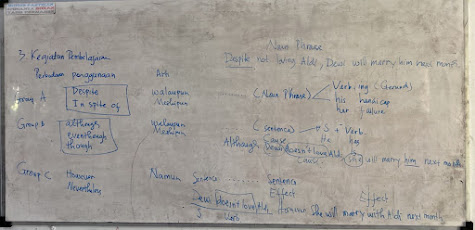 Noun Phrase
3. Kegiatan Pembelajaran
Despite not loving Aldi, Dewi will marry him next month
Perbedaan penggunaan Arti
Group A Despite walaupun (Noun Phrase) Verb, ing (Gerund)
In spite of Meskipun his handicap
her failure
Group B although, walaupun (sentence) S + Verb
eventhough Meskipun Cause He has
though Although, Dewi doesn't love Aldi, She will marry him next month
cause
Group C However Namun Sentence Sentence
Nevertheless Effect Effect
Dewi doesn't love Aldi, However She will marry with Aldi next month
S Verb